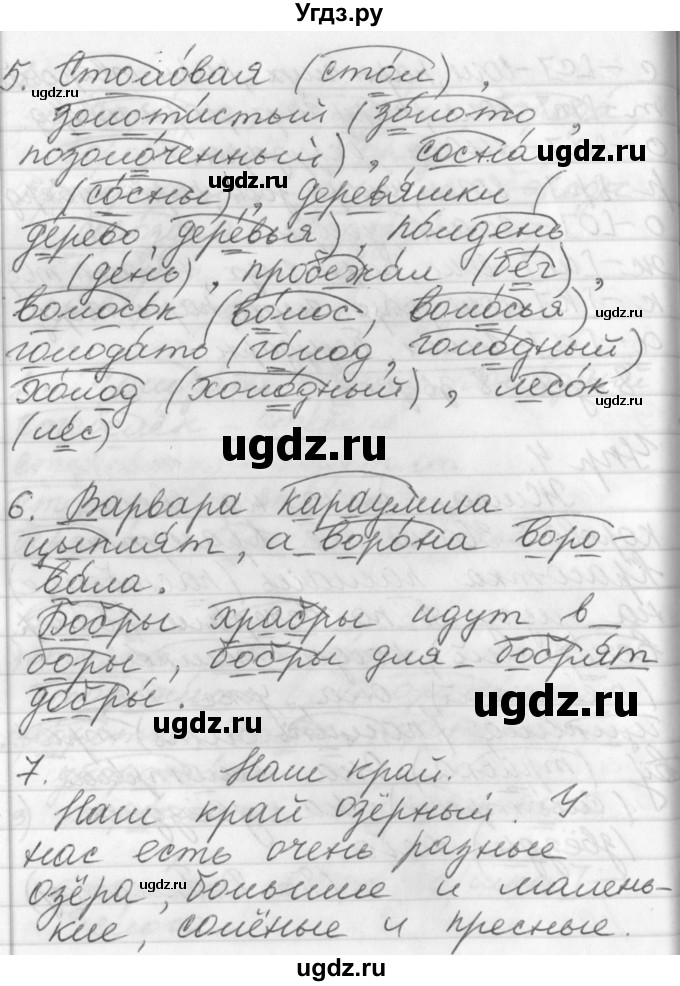 Угдз.ру
5. Столовая (стол),
золотистый (золото,
позолоченный), сосна
(сосны), деревяшки (
дерево, деревья), полдень
(день), пробежал (бег),
волосок (волос, волосья)
голодать (голод, голодный)
холод (холодный), лесок
(лес)
6. Варвара караулила
цыплят, а ворона воро-
вала.
Бобры храбры идут в
боры, бобры для бобрят
добры.
7. Наш край.
Наш край озёрный. У
нас есть очень разные
озёра, большие и малень-
кие, солёные и пресные.
ugdz.ru
ugdz.ru
ugdz.ru
ugdz.ru
ugdz.ru
ugdz.ru
ugdz.ru
ugdz.ru
ugdz.ru